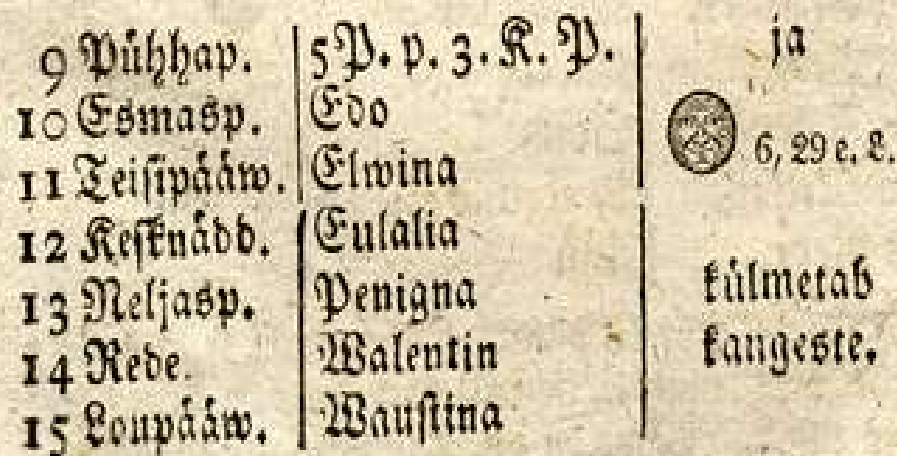 9 Pühhap. 5 P. p. 3. K. P. ja
10 Esmasp. Edo
11 Teisipääw. Elwina 6, 29 e. L.
12 Kesknädd. Eulalia
13 Neljasp. Penigna külmetab
14 Rede. Walentin kangeste.
15 Loupääw. Waustina